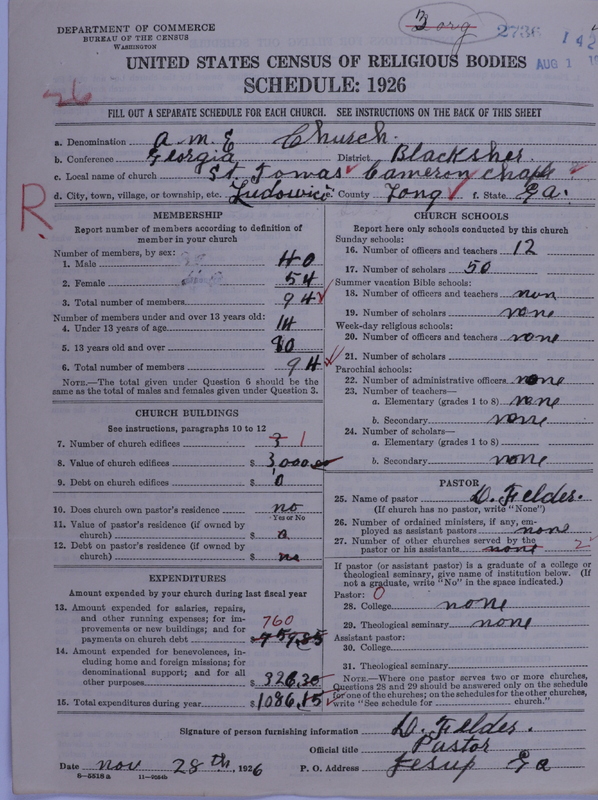 DEPARTMENT OF COMMERCE
BUREAU OF THE CENSUS
WASHINGTON
3 org
2736
142
AUG 1
UNITED STATES CENSUS OF RELIGIOUS BODIES
SCHEDULE: 1926
26
FILL OUT A SEPARATE SCHEDULE FOR EACH CHURCH. SEE INSTRUCTIONS ON THE BACK OF THIS SHEET
a. Denomination A. M. E Church.
b. Conference Georgia District Blacksher
c. Local name of church St. Tomas Cameron Chaple
d. City, town, village, or township, etc. Ludowici e. County Long f. State Ga.
R.
MEMBERSHIP
Report number of members according to definition of member in your church
Number of members, by sex:
1. Male 40
2. Female 54
3. Total number of members 94
Number of members under and over 13 years old:
4. Under 13 years of age 14
5. 13 years old and over 80
6. Total number of members 94
NOTE.—The total given under Question 6 should be the same as the total of males and females given under Question 3.
CHURCH BUILDINGS
See instructions, paragraphs 10 to 12
7. Number of church edifices 1
8. Value of church edifices $ 3,000.00
9. Debt on church edifices $ 0
10. Does church own pastor's residence no
Yes or No
11. Value of pastor's residence (if owned by church) $ 0
12. Debt on pastor's residence (if owned by church) $ no
EXPENDITURES
Amount expended by your church during last fiscal year
13. Amount expended for salaries, repairs, and other running expenses; for improvements or new buildings; and for payments on church debt 760
14. Amount expended for benevolences, including home and foreign missions; for denominational support; and for all other purposes $ 326.30
15. Total expenditures during year $ 1086.15
CHURCH SCHOOLS
Report here only schools conducted by this church
Sunday schools:
16. Number of officers and teachers 12
17. Number of scholars 50
Summer vacation Bible schools:
18. Number of officers and teachers non
19. Number of scholars none
Week-day religious schools:
20. Number of officers and teachers none
21. Number of scholars
Parochial schools:
22. Number of administrative officers none
23. Number of teachers—
a. Elementary (grades 1 to 8) none
b. Secondary none
24. Number of scholars—
a. Elementary (grades 1 to 8)
b. Secondary none
PASTOR
25. Name of pastor D. Fielder.
(If church has no pastor, write "None")
26. Number of ordained ministers, if any, employed as assistant pastors none
27. Number of other churches served by the pastor or his assistants none 2
If pastor (or assistant pastor) is a graduate of a college or theological seminary, give name of institution below. (If not a graduate, write "No" in the space indicated.)
Pastor: 0
28. College none
29. Theological seminary none
Assistant pastor:
30. College
31. Theological seminary
NOTE.—Where one pastor serves two or more churches, Questions 28 and 29 should be answered only on the schedule for one of the churches; on the schedules for the other churches, write "See schedule for church."
Signature of person furnishing information D. Fielder.
Official title Pastor
Date nov 28th, 1926 P. O. Address Jesup Ga
6-5518 a 11-9054b